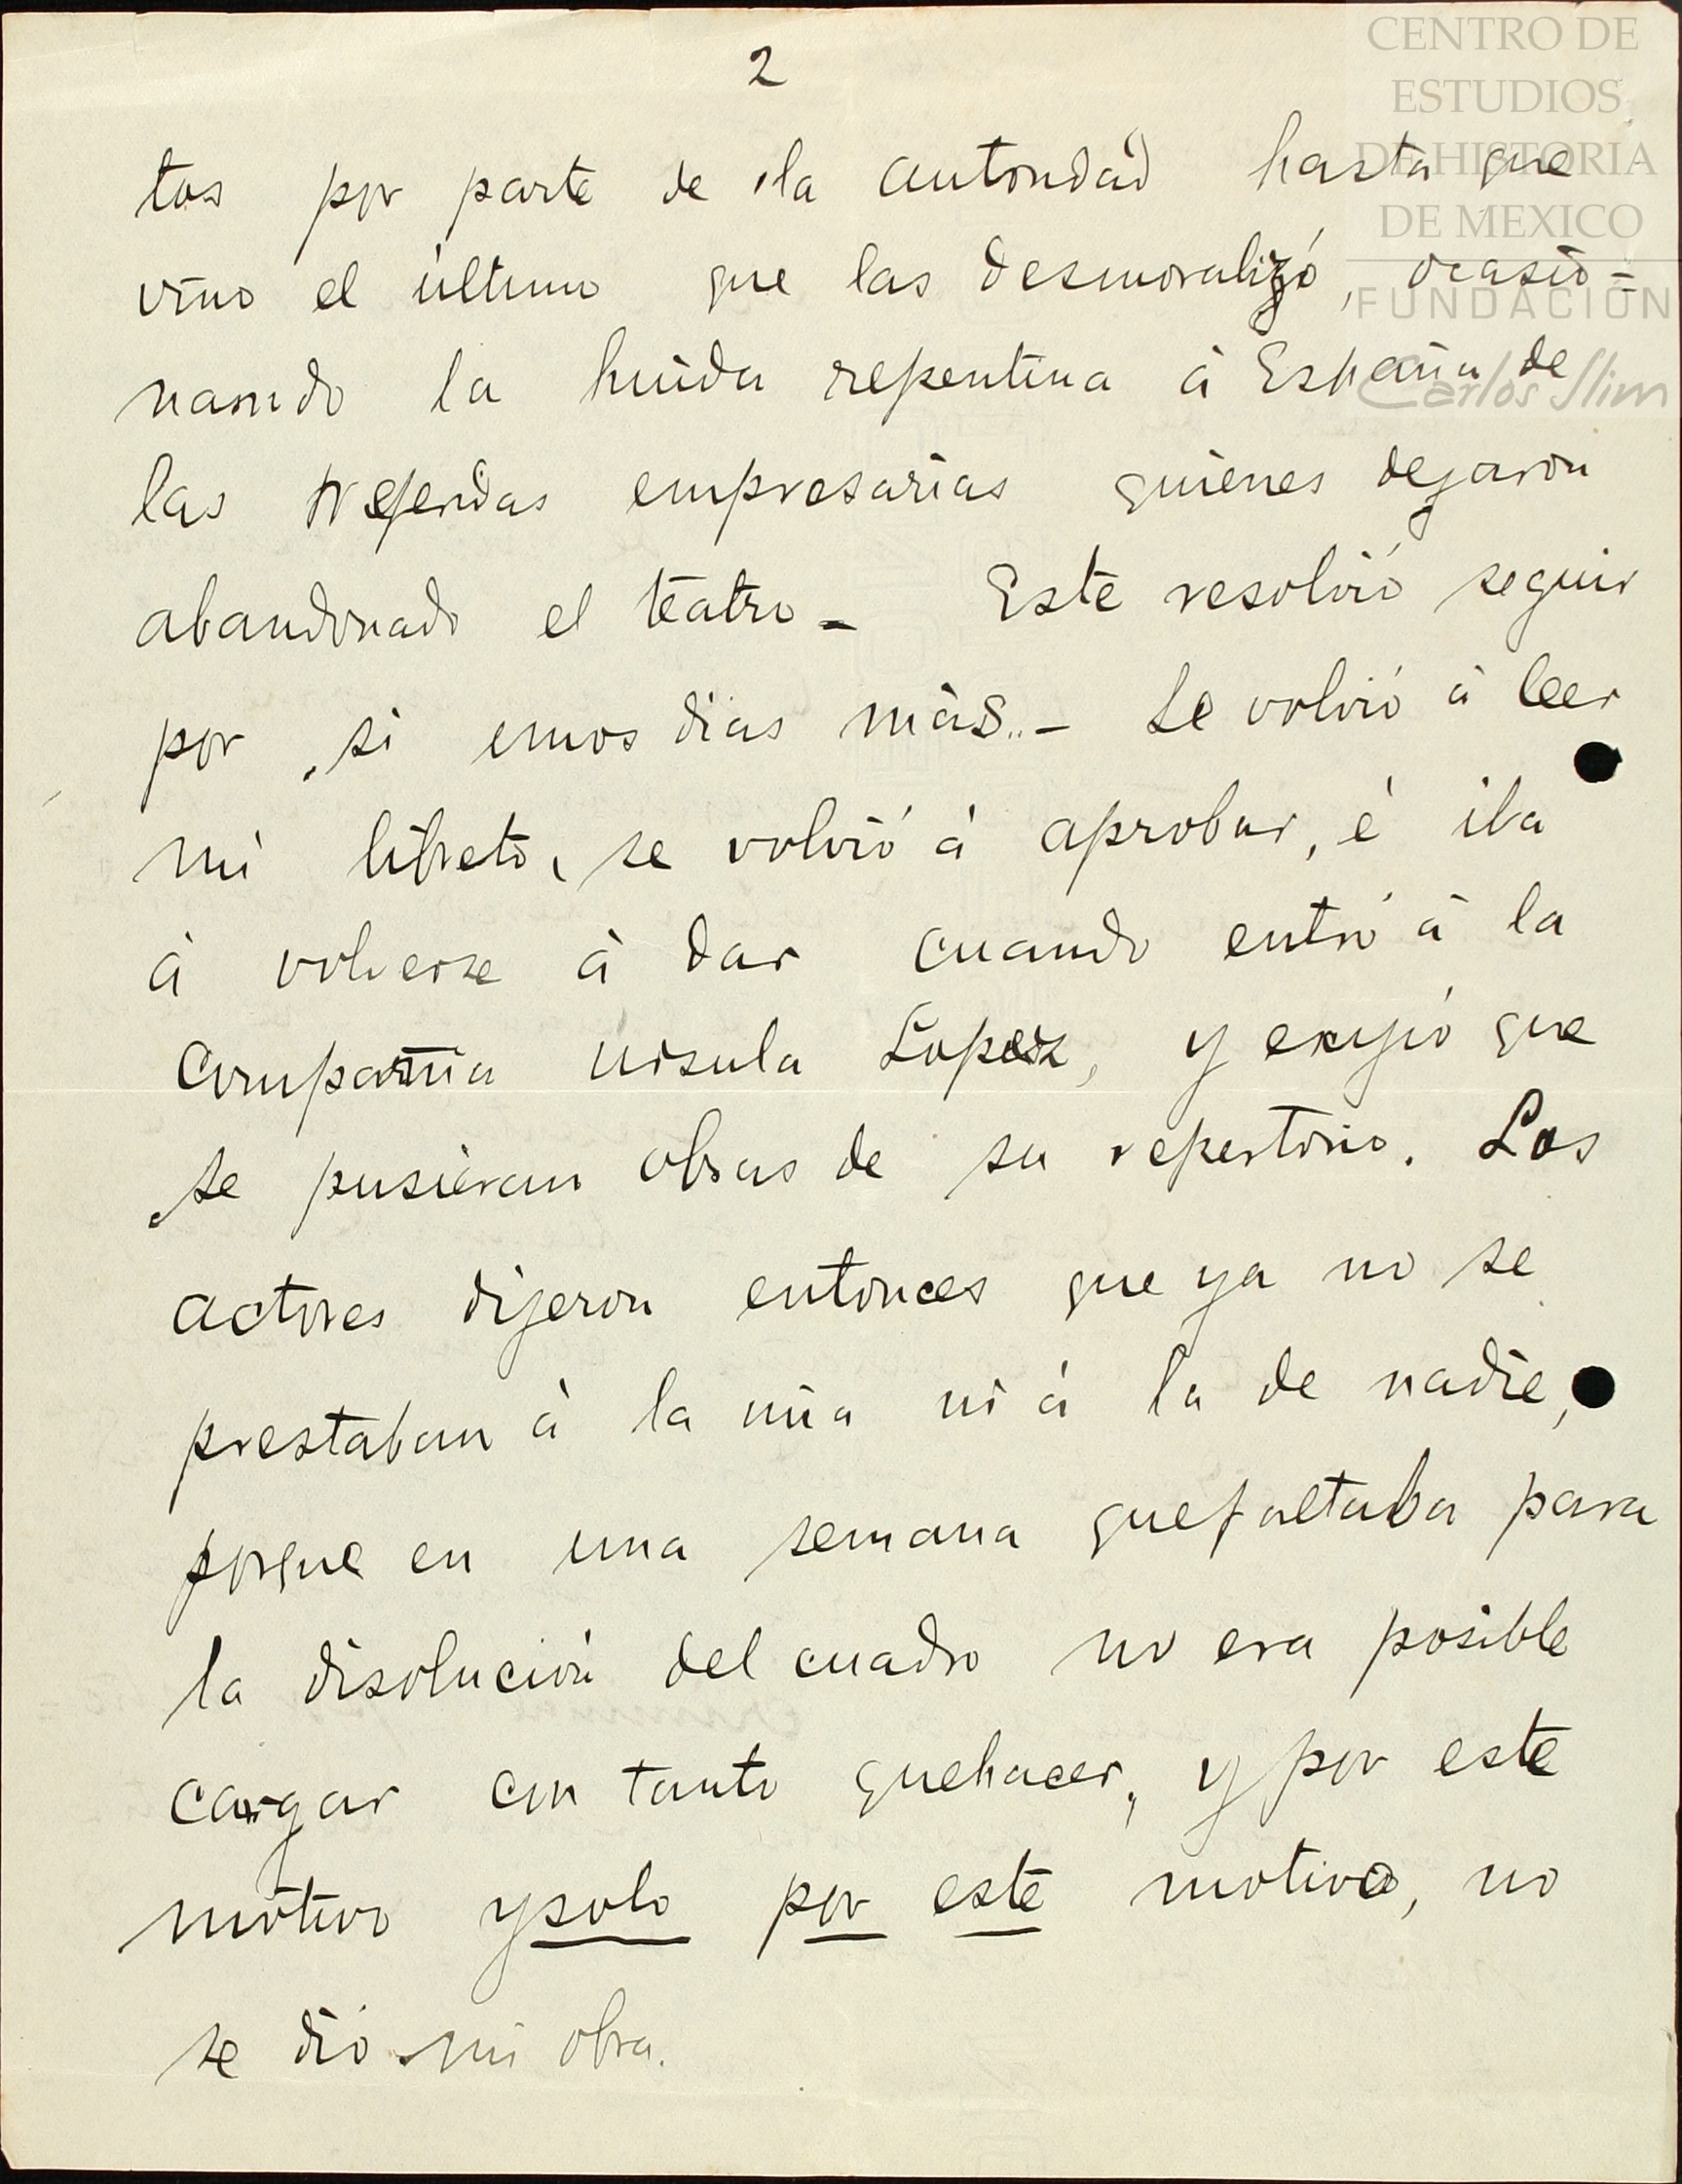 2
tos por parte de la autoridad hasta que
vino el último que las desmoralizó, ocasio=
nando la huida repentina á España de
las referidas empresarias quienes dejaron
abandonado el teatro_ Este resolvió seguir
por si unos dias más..- Se volvió á leer
mi libreto, se volvió á aprobar, é iba
á volverse á dar cuando entró á la
Compañia Ursula Lopez, y exigió que
se pusieran obras de su repertorio. Los
actores dijeron entonces que ya no se
prestaban á la mia ni á la de nadie,
porque en una semana que faltaba para
la disolución del cuadro no era posible
cargar con tanto quehacer, y por este
motivo y solo por este motivo, no
se dió mi obra.
CENTRO DE
ESTUDIOS
DE HISTORIA
DE MEXICO
FUNDACIÓN
Carlos Slim